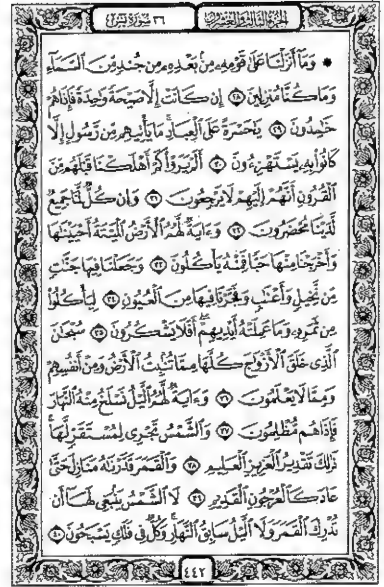 الجزء الثالث والعشرون
٣٦ سورة يس
۞ وَمَآ أَنزَلْنَا عَلَىٰ قَوْمِهِۦ مِنۢ بَعْدِهِۦ مِن جُندٍ مِّنَ ٱلسَّمَآءِ
وَمَا كُنَّا مُنزِلِينَ ٢٨ إِن كَانَتْ إِلَّا صَيْحَةً وَٰحِدَةً فَإِذَا هُمْ
خَٰمِدُونَ ٢٩ يَٰحَسْرَةً عَلَى ٱلْعِبَادِ ۚ مَا يَأْتِيهِم مِّن رَّسُولٍ إِلَّا
كَانُوا۟ بِهِۦ يَسْتَهْزِءُونَ ٣٠ أَلَمْ يَرَوْا۟ كَمْ أَهْلَكْنَا قَبْلَهُم مِّنَ
ٱلْقُرُونِ أَنَّهُمْ إِلَيْهِمْ لَا يَرْجِعُونَ ٣١ وَإِن كُلٌّ لَّمَّا جَمِيعٌ
لَّدَيْنَا مُحْضَرُونَ ٣٢ وَءَايَةٌ لَّهُمُ ٱلْأَرْضُ ٱلْمَيْتَةُ أَحْيَيْنَٰهَا
وَأَخْرَجْنَا مِنْهَا حَبًّا فَمِنْهُ يَأْكُلُونَ ٣٣ وَجَعَلْنَا فِيهَا جَنَّٰتٍ
مِّن نَّخِيلٍ وَأَعْنَٰبٍ وَفَجَّرْنَا فِيهَا مِنَ ٱلْعُيُونِ ٣٤ لِيَأْكُلُوا۟
مِن ثَمَرِهِۦ وَمَا عَمِلَتْهُ أَيْدِيهِمْ ۖ أَفَلَا يَشْكُرُونَ ٣٥ سُبْحَٰنَ
ٱلَّذِى خَلَقَ ٱلْأَزْوَٰجَ كُلَّهَا مِمَّا تُنۢبِتُ ٱلْأَرْضُ وَمِنْ أَنفُسِهِمْ
وَمِمَّا لَا يَعْلَمُونَ ٣٦ وَءَايَةٌ لَّهُمُ ٱلَّيْلُ نَسْلَخُ مِنْهُ ٱلنَّهَارَ
فَإِذَا هُم مُّظْلِمُونَ ٣٧ وَٱلشَّمْسُ تَجْرِى لِمُسْتَقَرٍّ لَّهَا ۚ
ذَٰلِكَ تَقْدِيرُ ٱلْعَزِيزِ ٱلْعَلِيمِ ٣٨ وَٱلْقَمَرَ قَدَّرْنَٰهُ مَنَازِلَ حَتَّىٰ
عَادَ كَٱلْعُرْجُونِ ٱلْقَدِيمِ ٣٩ لَا ٱلشَّمْسُ يَنۢبَغِى لَهَآ أَن
تُدْرِكَ ٱلْقَمَرَ وَلَا ٱلَّيْلُ سَابِقُ ٱلنَّهَارِ ۚ وَكُلٌّ فِى فَلَكٍ يَسْبَحُونَ ٤٠
٤٤٢